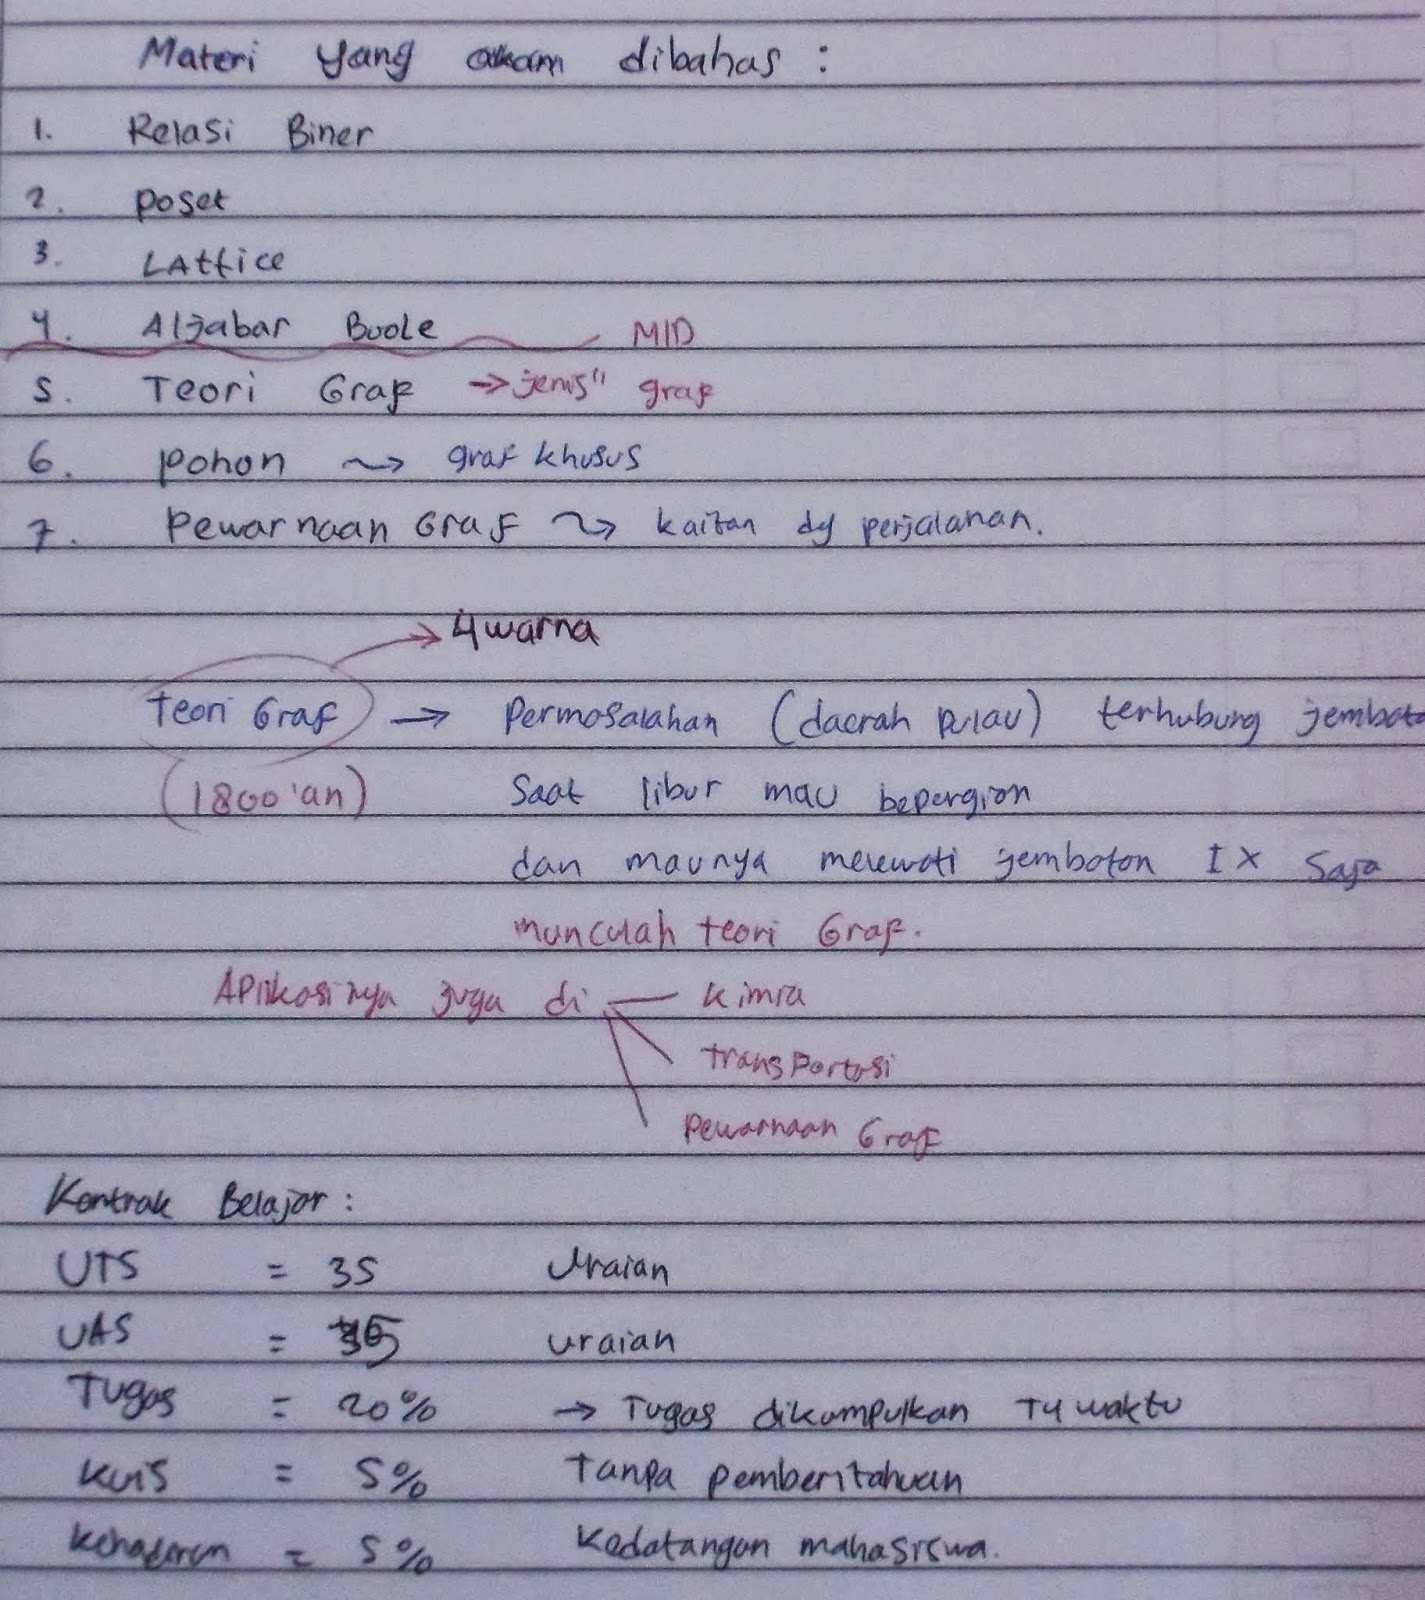 Materi yang akam dibahas :
1. Relasi Biner
2. poset
3. LAttice
4. Aljabar Boole MID
5. Teori Graf → jenis" graf
6. pohon ~> graf khusus
7. Pewarnaan Graf ~> kaitan dg perjalanan.
4 warna
Teori Graf → Permasalahan (daerah pulau) terhubung jembata
(1800'an) Saat libur mau bepergian
dan maunya melewati jembatan 1 X saja
munculah teori Graf.
Aplikasinya juga di — kimia
transportasi
Pewarnaan Graf
Kontrak Belajar :
UTS = 35 Uraian
UAS = 35 uraian
Tugas = 20% → Tugas dikumpulkan T4 waktu
Kuis = 5% Tanpa pemberitahuan
Kehadiran = 5% Kedatangan mahasiswa.